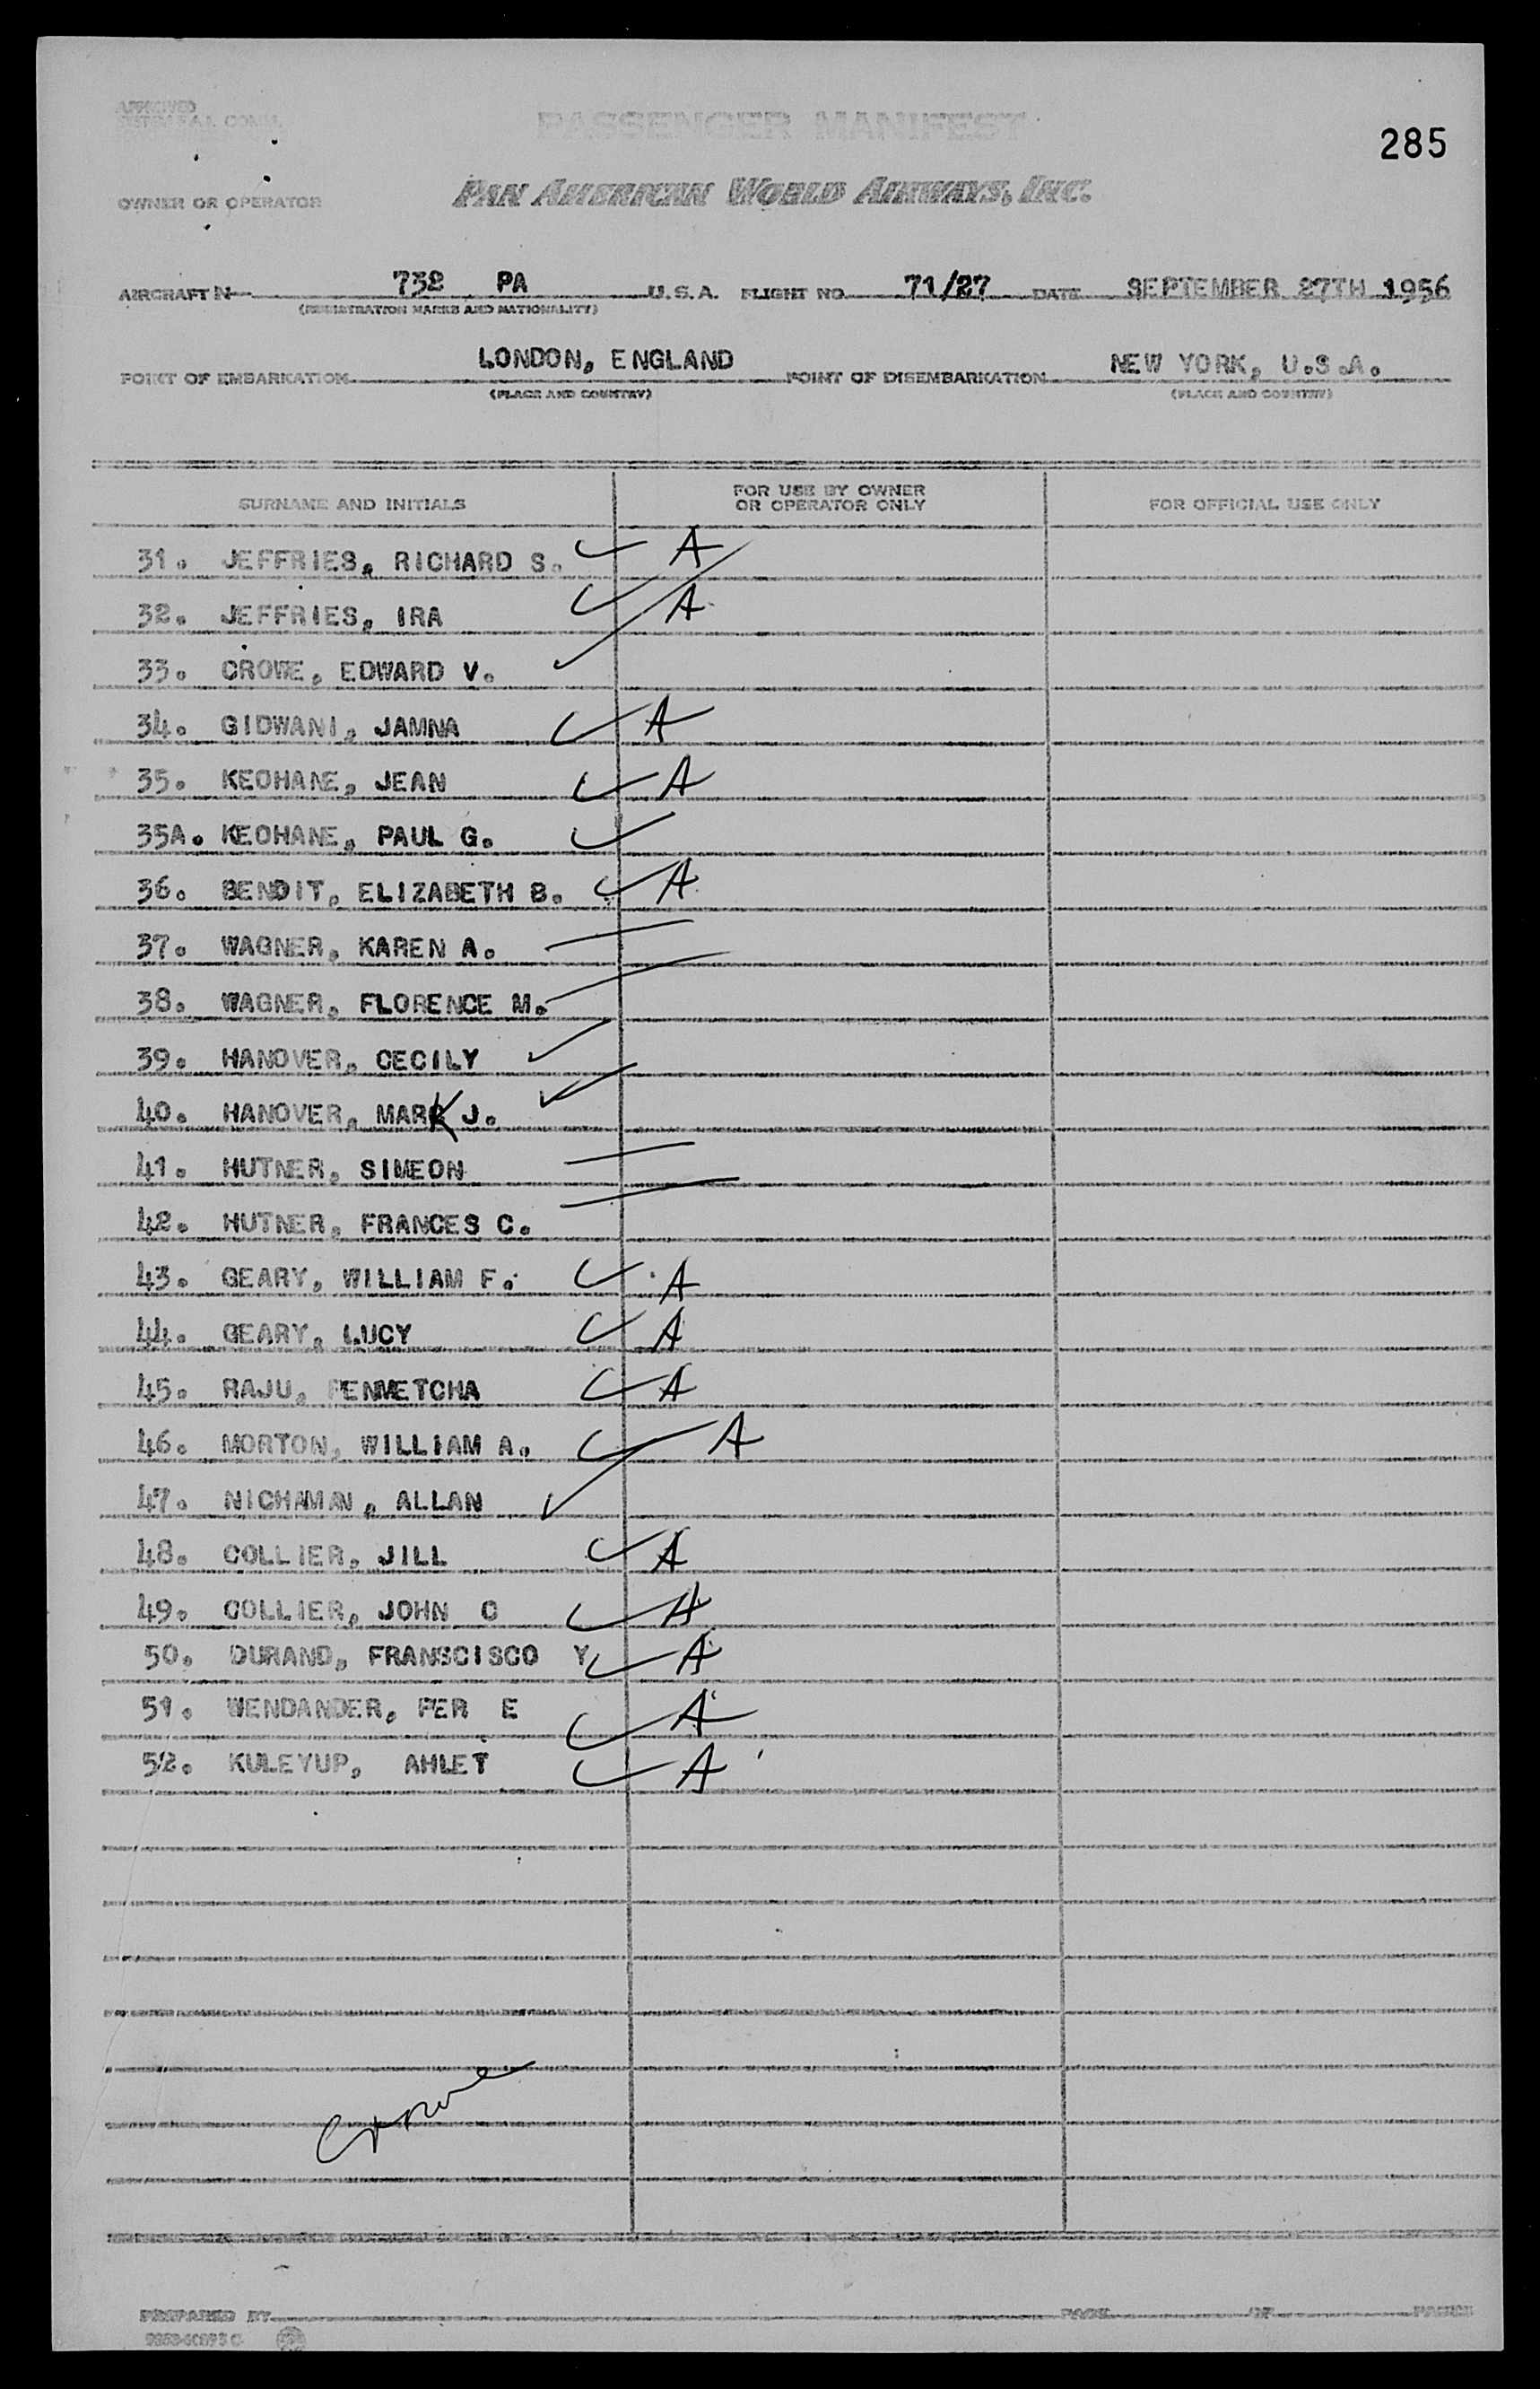 APPROVED
285
PASSENGER MANIFEST
OWNER OR OPERATOR PAN AMERICAN WORLD AIRWAYS, INC.
AIRCRAFT N 732 PA U.S.A. FLIGHT NO. 71/27 DATE SEPTEMBER 27TH 1956
(REGISTRATION MARKS AND NATIONALITY)
POINT OF EMBARKATION LONDON, ENGLAND POINT OF DISEMBARKATION NEW YORK, U.S.A.
(PLACE AND COUNTRY) (PLACE AND COUNTRY)
SURNAME AND INITIALS FOR USE BY OWNER OR OPERATOR ONLY FOR OFFICIAL USE ONLY
31. JEFFRIES, RICHARD S. A
32. JEFFRIES, IRA A
33. CROWE, EDWARD V.
34. GIDWANI, JAMNA A
35. KEOHANE, JEAN A
35A. KEOHANE, PAUL G.
36. BENDIT, ELIZABETH B. A
37. WAGNER, KAREN A.
38. WAGNER, FLORENCE M.
39. HANOVER, CECILY
40. HANOVER, MARK J.
41. HUTNER, SIMEON
42. HUTNER, FRANCES C.
43. GEARY, WILLIAM F. A
44. GEARY, LUCY A
45. RAJU, PENMETCHA A
46. MORTON, WILLIAM A. A
47. NICHAMAN, ALLAN
48. COLLIER, JILL A
49. COLLIER, JOHN C A
50. DURAND, FRANSCISCO Y A
51. WENDANDER, PER E A
52. KULEYUP, AHLET A
Crowe
PREPARED BY PAGE OF PAGES